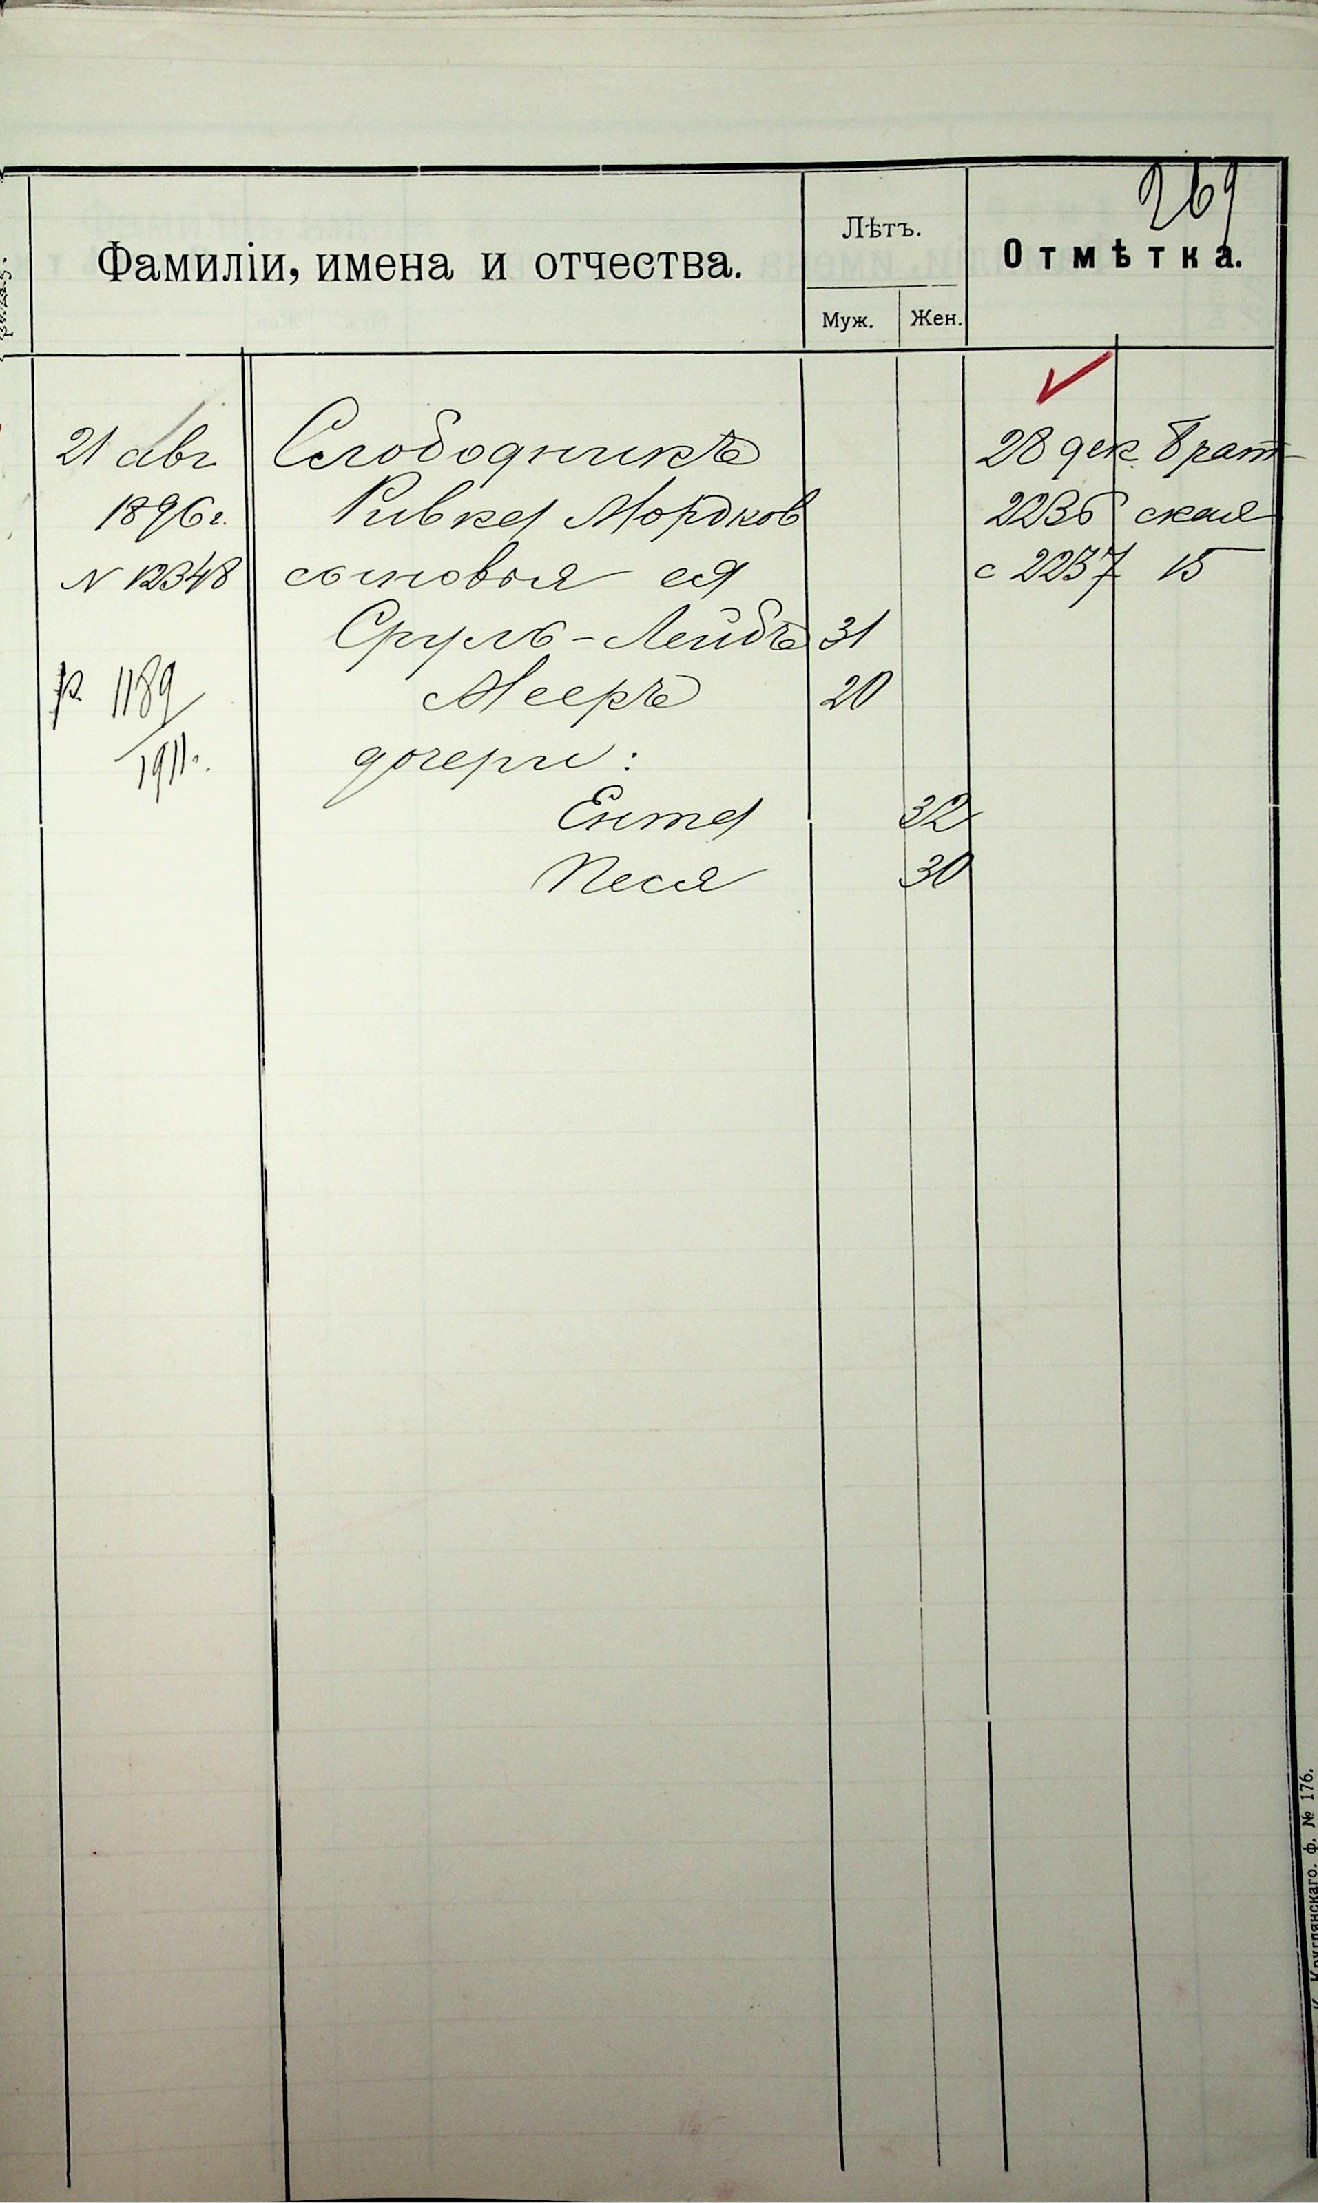 269
Фамиліи, имена и отчества.
Лѣтъ.
Муж.
Жен.
Отмѣтка.
21 авг
1896 г.
N 12348
р. 1189
1911.
Слободникъ
Ривка Мордков
сыновья ея
Сруль-Лейбъ 31
Мееръ 20
дочери:
Ента 32
Песя 30
28 дек. Брат-
2236 ская
с 2237 15
Круглянскаго. ф. № 176.